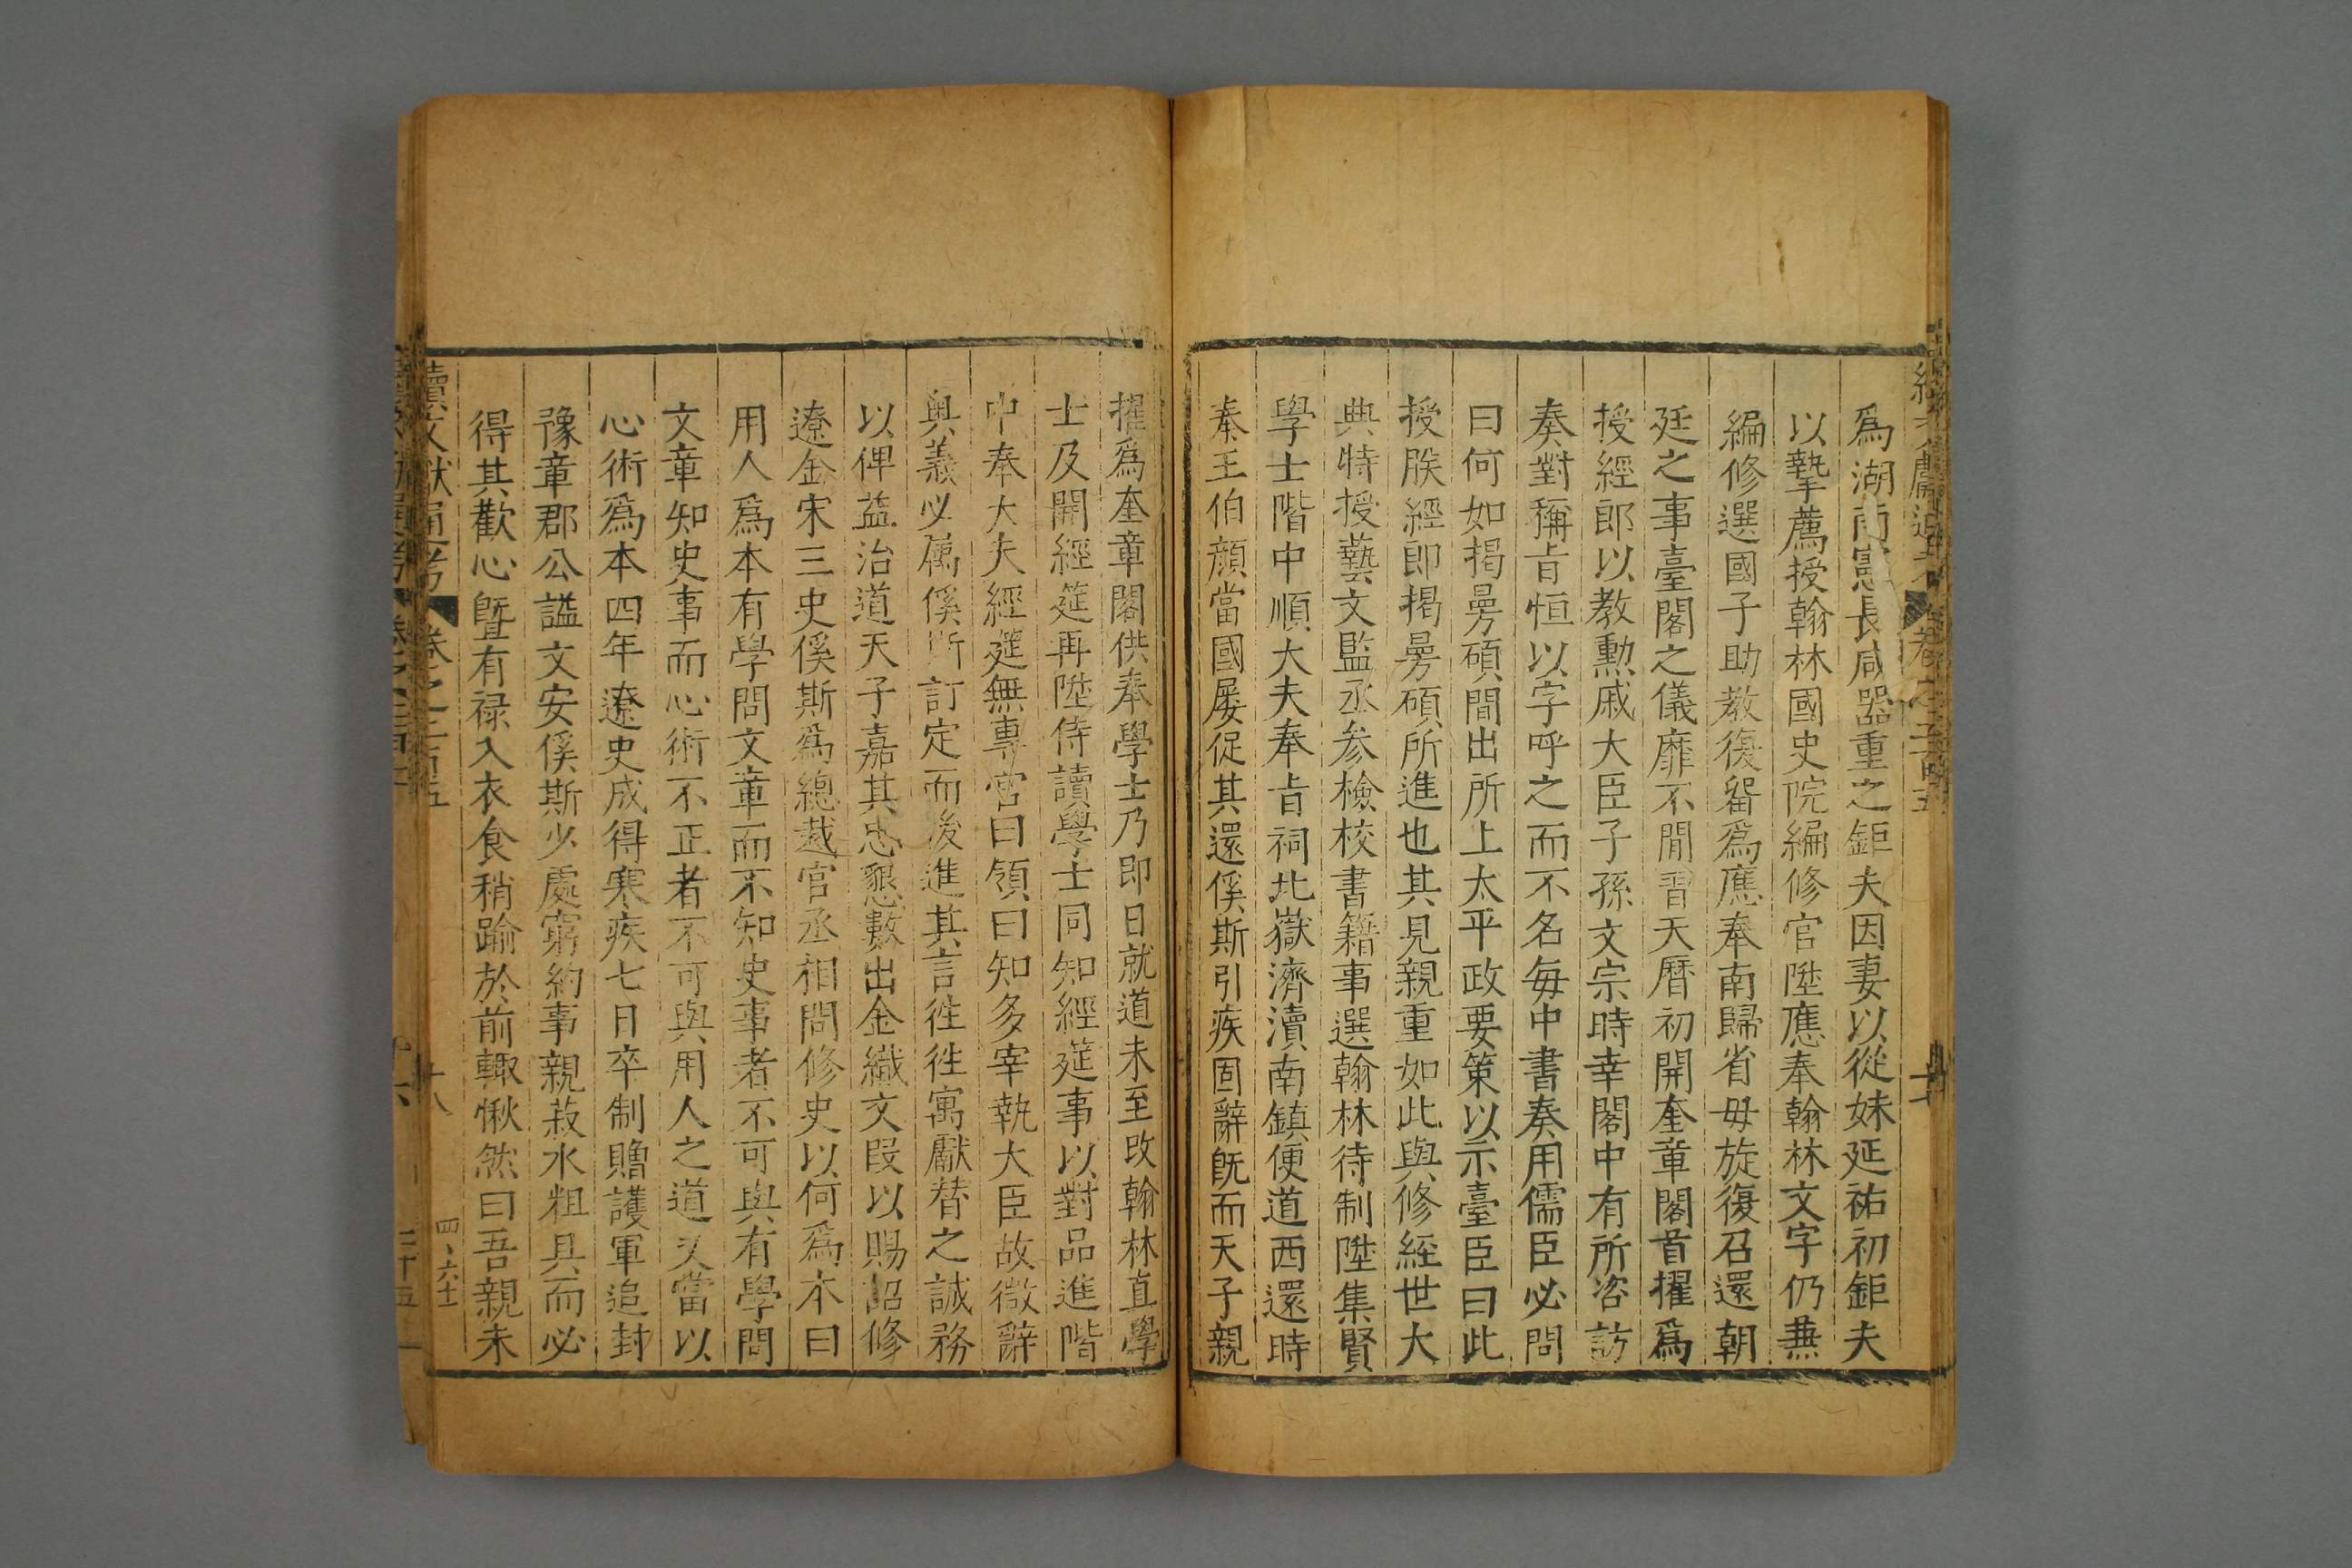 爲湖南憲長咸器重之鉅夫因妻以從妹延祐初鉅夫
以摯薦授翰林國史院編修官陞應奉翰林文字仍兼
編修選國子助教復留爲應奉南歸省母旋復召還朝
廷之事臺閣之儀靡不閒習天曆初開奎章閣首擢爲
授經郎以教勲戚大臣子孫文宗時幸閣中有所咨訪
奏對稱旨恒以字呼之而不名每中書奏用儒臣必問
曰何如揭曼碩間出所上太平政要策以示臺臣曰此
授朕經即揭曼碩所進也其見親重如此與修經世大
典特授藝文監丞参檢校書籍事選翰林待制陞集賢
學士階中順大夫奉旨祠北嶽濟瀆南鎮便道西還時
秦王伯顔當國屡促其還傒斯引疾固辭旣而天子親
擢爲奎章閣供奉學士乃即日就道未至改翰林直學
士及開經筵再陞侍讀學士同知經筵事以對品進階
中奉大夫經筵無專官曰領曰知多宰執大臣故微辭
奥義必属傒斯訂定而後進其言徃徃寓獻替之誠務
以俾益治道天子嘉其忠懇數出金織文段以賜詔修
遼金宋三史傒斯爲總裁官丞相問修史以何爲本曰
用人爲本有學問文章而不知史事者不可與有學問
文章知史事而心術不正者不可與用人之道又當以
心術爲本四年遼史成得寒疾七日卒制贈護軍追封
豫章郡公謚文安傒斯少處窮約事親菽水粗具而必
得其歡心曁有禄入衣食稍踰於前輙愀然曰吾親未
續文献通考 卷之二百五
十八